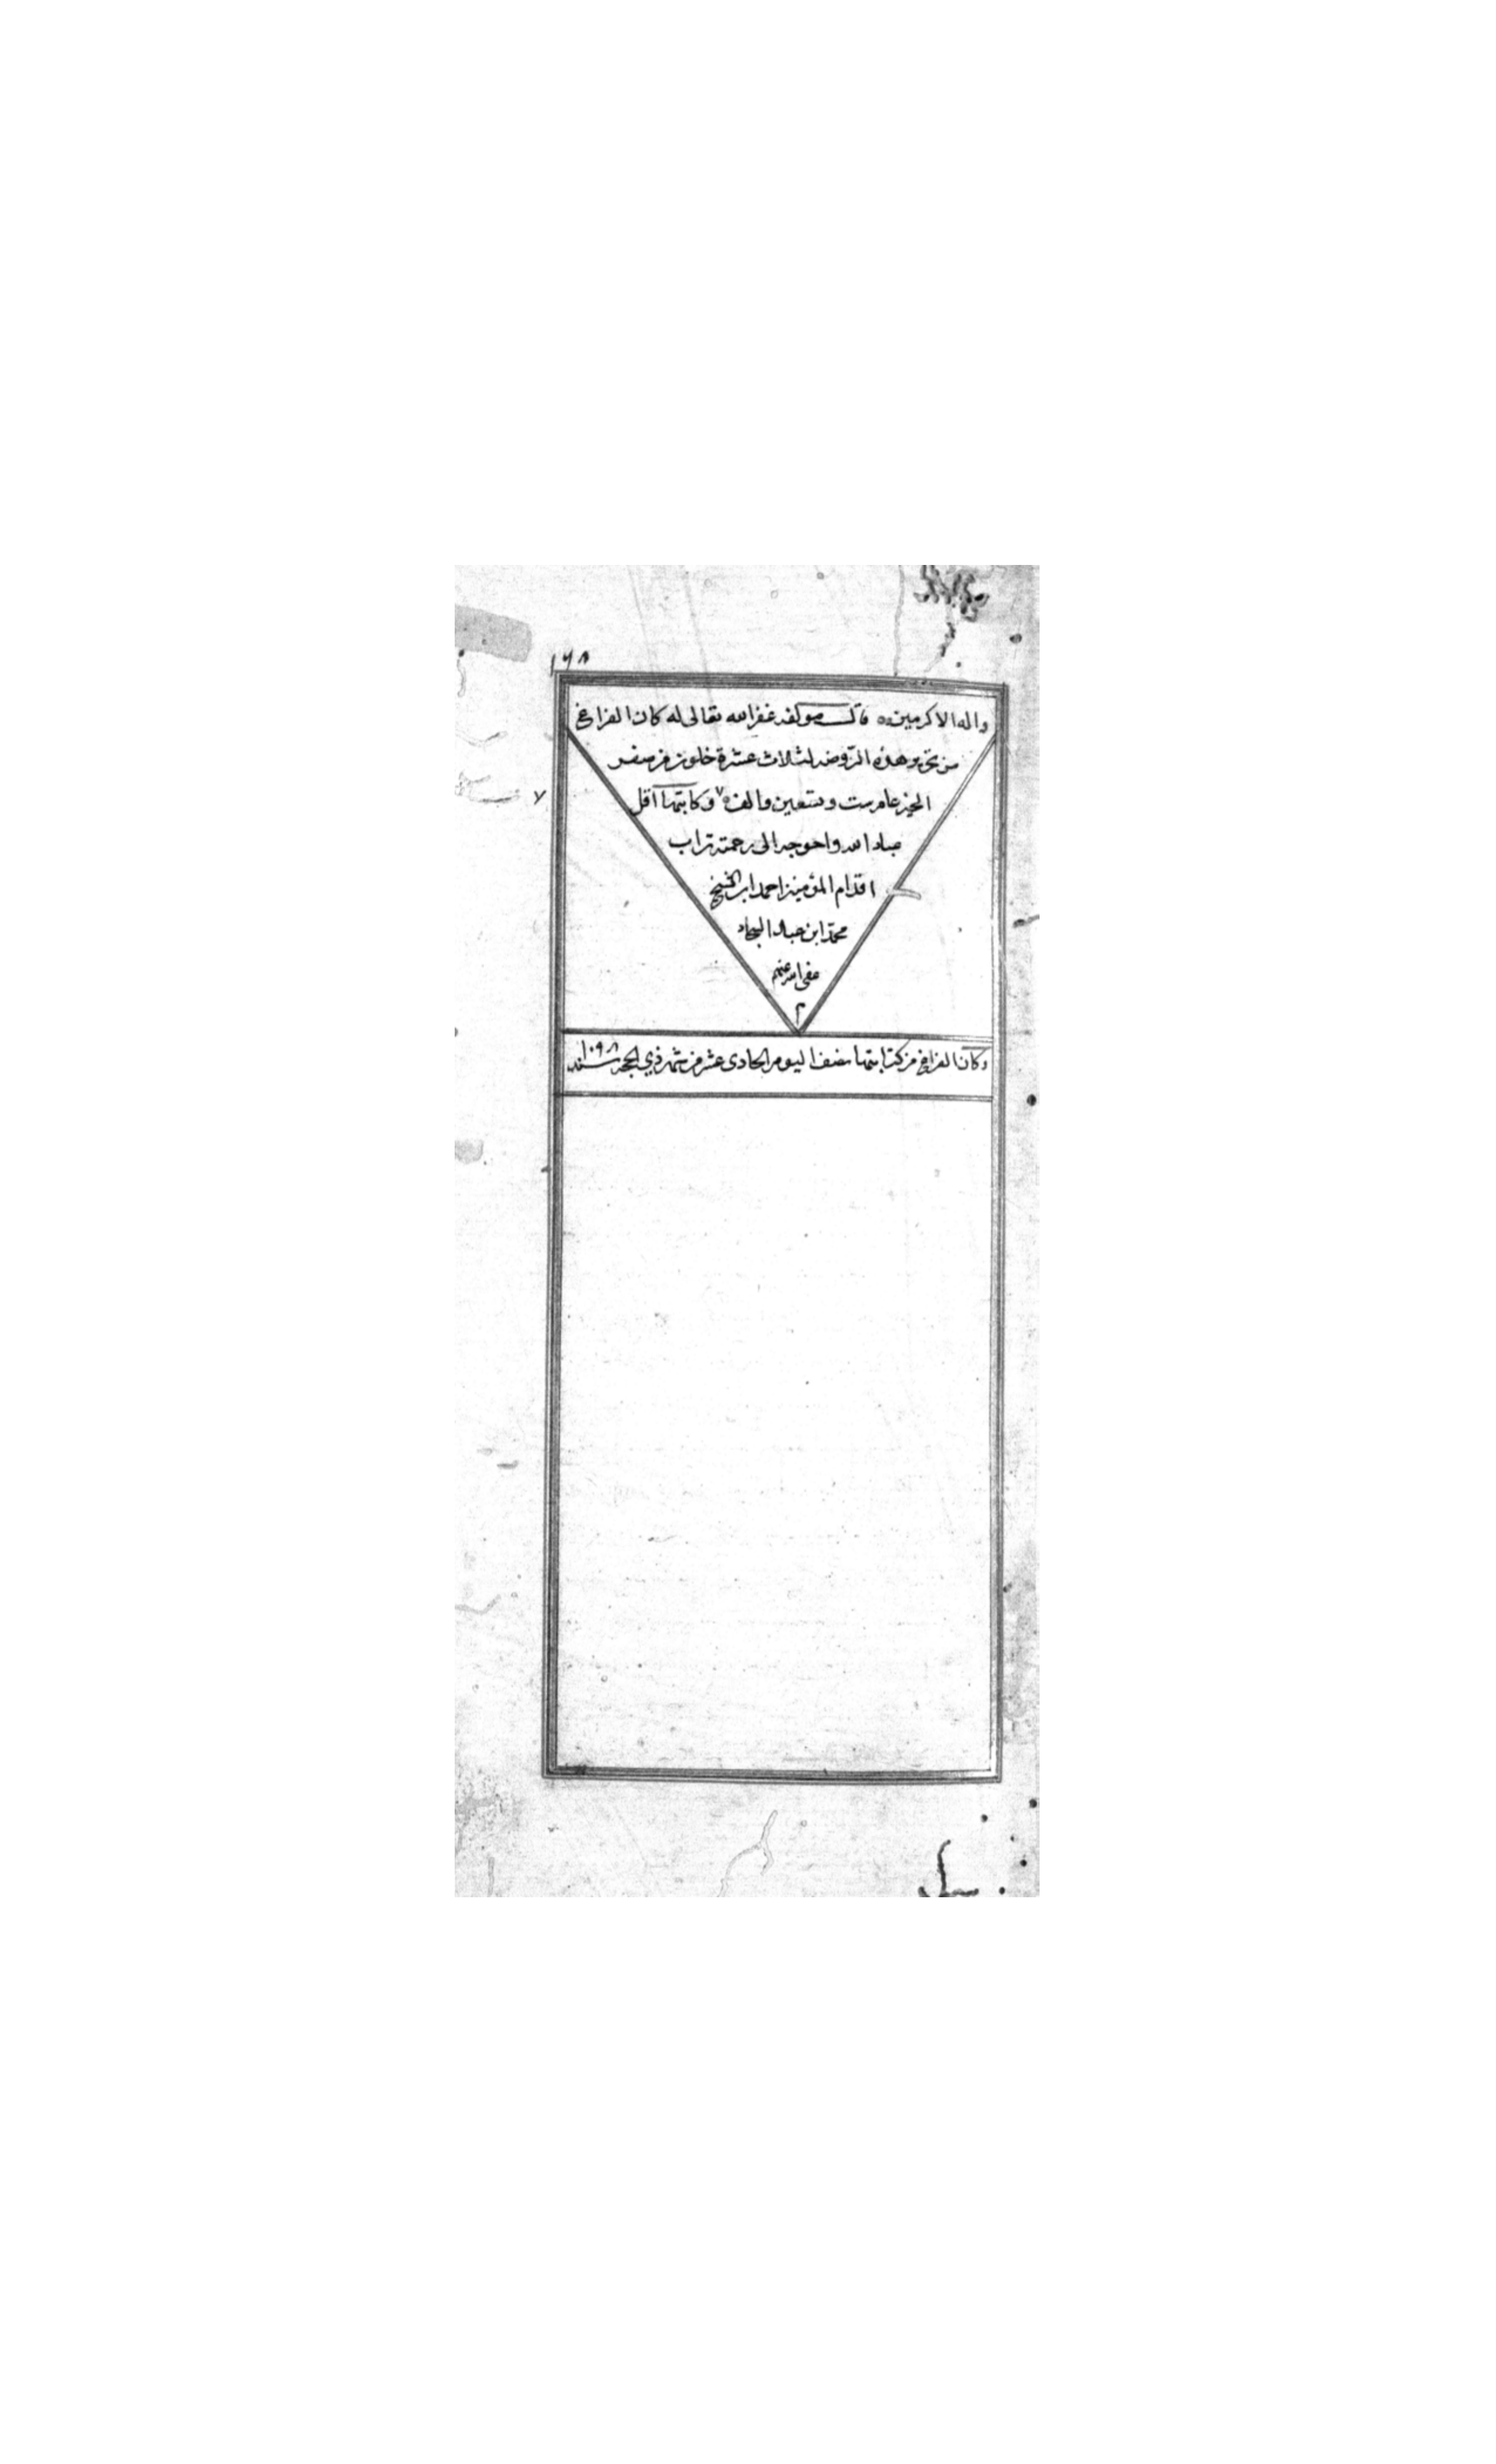 ١٦٨
واله الاكرمين قال مولفه غفر الله تعالى له كان الفراغ
من تحرير هذه الروضه لثلاث عشرة خلون من صفر
الخير عام ست وتسعين والف ٧ وكاتبها اقل
عباد الله واحوجه الى رحمته تراب
اقدام المؤمنين احمد ابن الشيخ
محمد ابن
عفى الله عنهم
م
وكان الفراغ من كتابتها نصف اليوم الحادي عشر من شهر ذي الحجه سنه ١٠٩٨